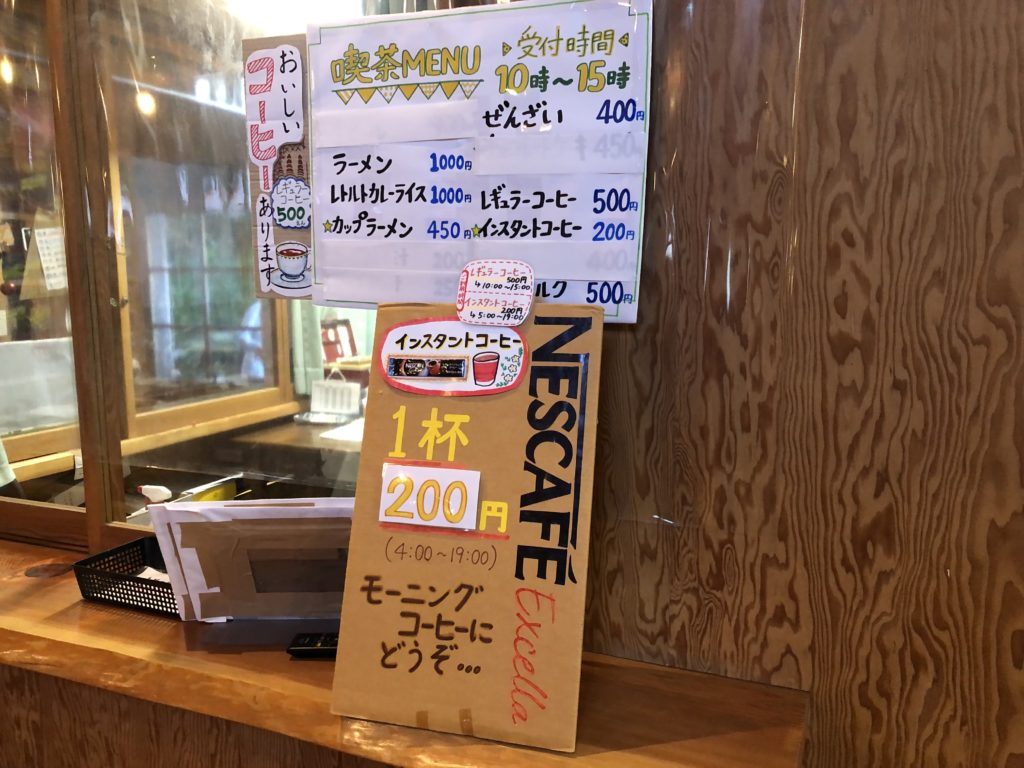 おいしい
コーヒー
あります
レギュラー
コーヒー
500
喫茶MENU
受付時間
10時～15時
ぜんざい 400円
ラーメン 1000円
レトルトカレーライス 1000円
☆カップラーメン 450円
レギュラーコーヒー 500円
☆インスタントコーヒー 200円
ルク 500円
レギュラーコーヒー
500円
↳10:00～15:00
インスタントコーヒー
200円
↳5:00～19:00
インスタントコーヒー
1杯
200円
(4:00～19:00)
モーニング
コーヒーに
どうぞ...
NESCAFÉ
Excella